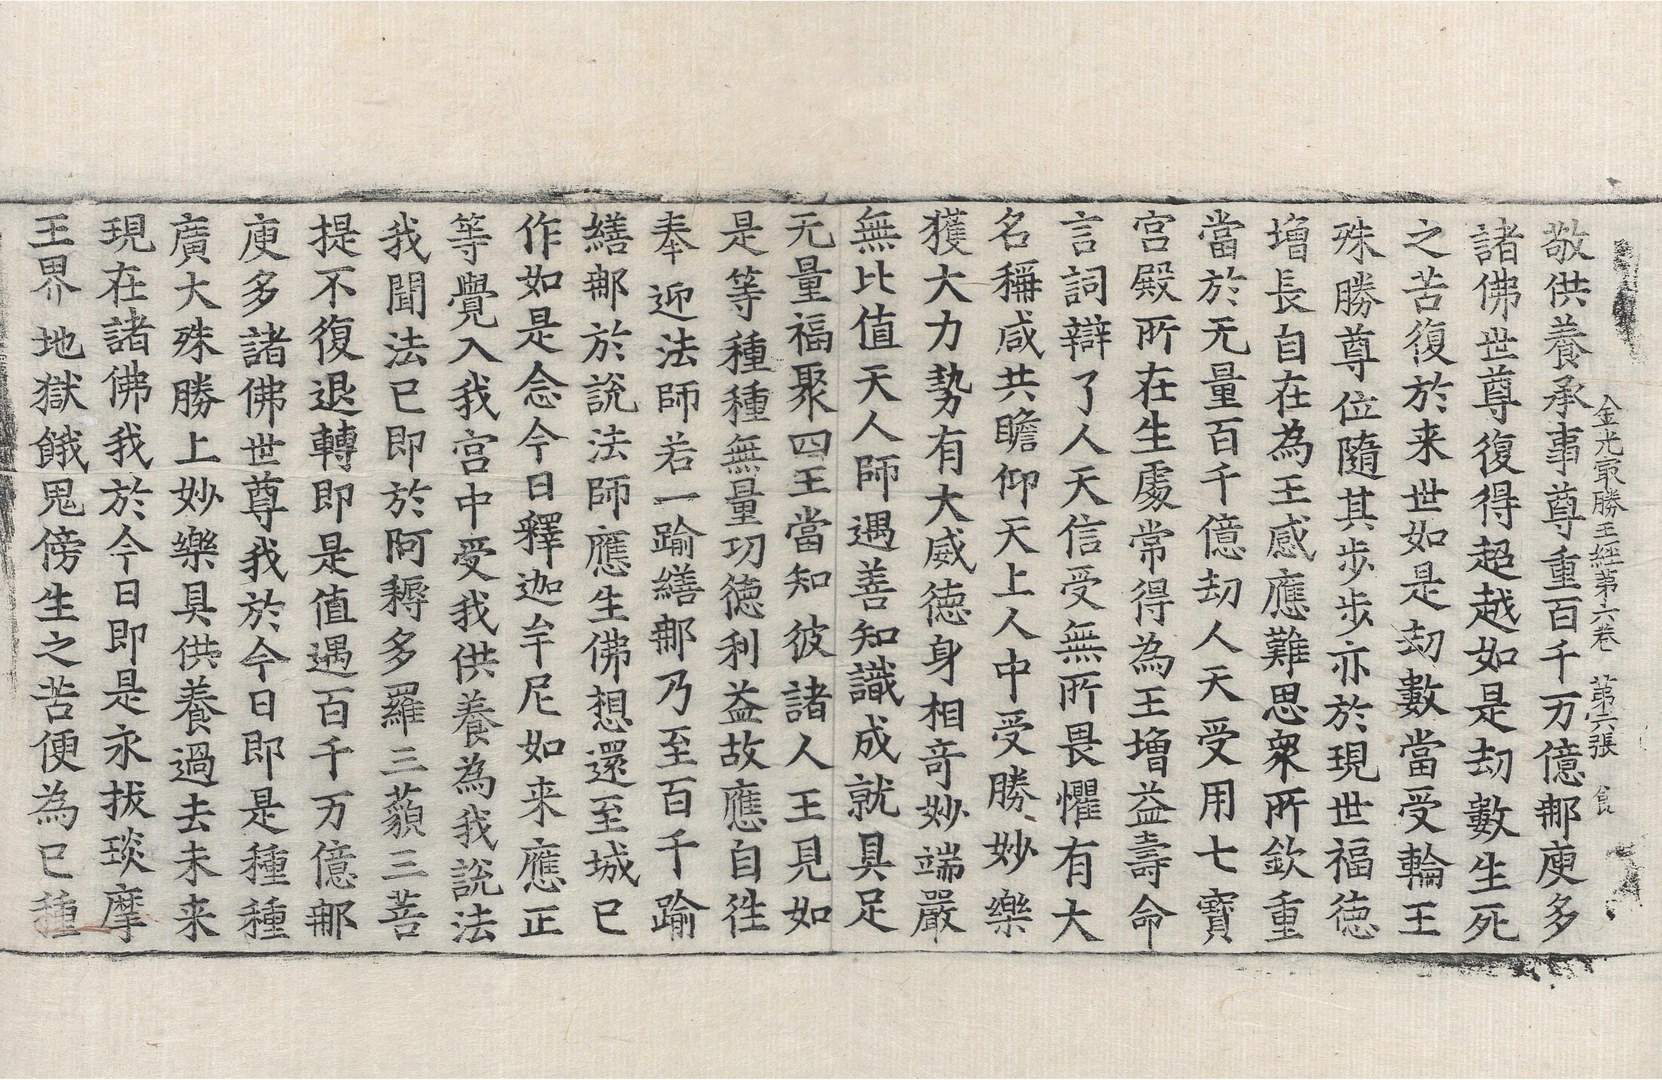 金光最勝王經第六卷 第六張 食
敬供養承事尊重百千万億郍庾多
諸佛世尊復得超越如是劫數生死
之苦復於来世如是劫數當受輪王
殊勝尊位隨其步步亦於現世福徳
增長自在為王感應難思衆所欽重
當於无量百千億劫人天受用七寶
宮殿所在生處常得為王增益壽命
言詞辯了人天信受無所畏懼有大
名稱咸共瞻仰天上人中受勝妙樂
獲大力勢有大威徳身相奇妙端嚴
無比值天人師遇善知識成就具足
无量福聚四王當知彼諸人王見如
是等種種無量功徳利益故應自往
奉迎法師若一踰繕郍乃至百千踰
繕郍於說法師應生佛想還至城已
作如是念今日釋迦牟尼如来應正
等覺入我宮中受我供養為我說法
我聞法已即於阿耨多羅三藐三菩
提不復退轉即是值遇百千万億郍
庾多諸佛世尊我於今日即是種種
廣大殊勝上妙樂具供養過去未来
現在諸佛我於今日即是永拔琰摩
王界地獄餓鬼傍生之苦便為已種